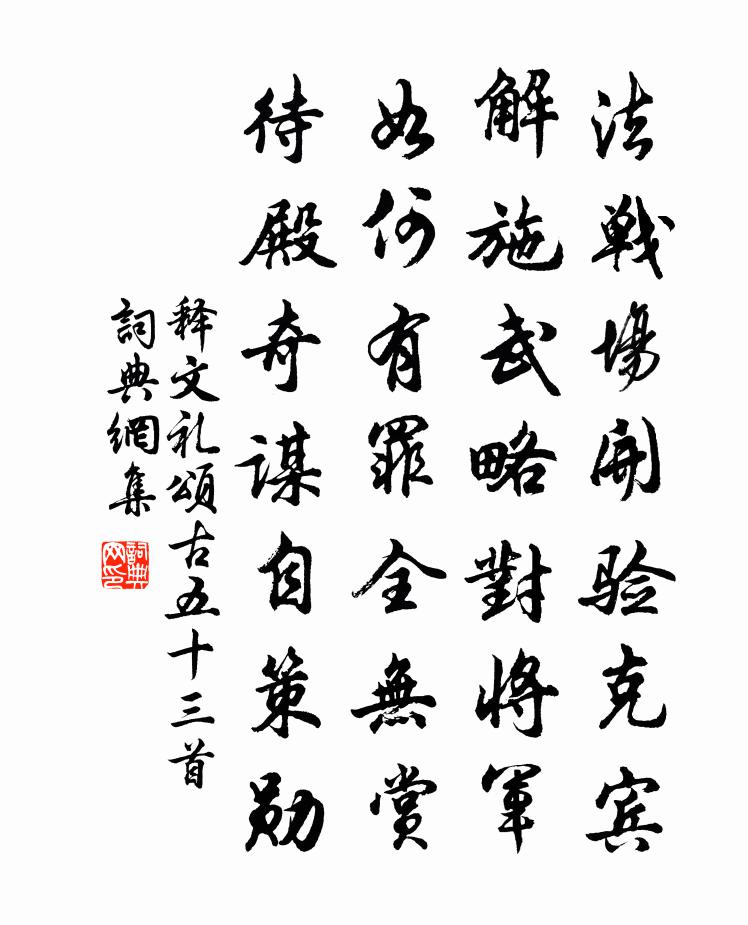 法戰場開验克宾
解施武略對將軍
如何有罪全無賞
待殿奇謀自策勋
释文礼頌古五十三首
詞典網集
詞典网印